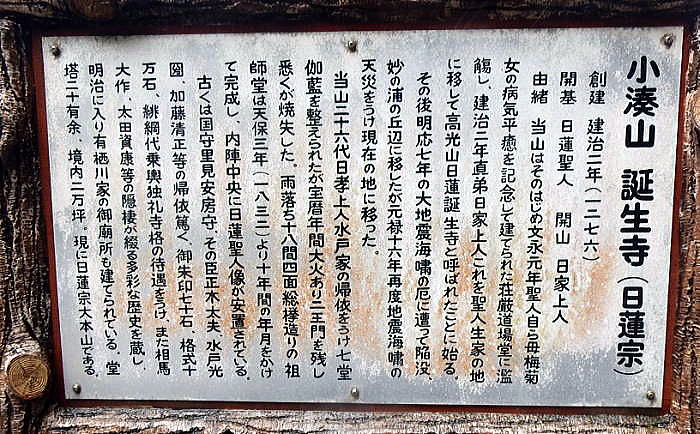 小湊山 誕生寺(日蓮宗)
創建 建治二年(一二七六)
開基 日蓮聖人 開山 日家上人
由緒 当山はそのはじめ文永元年聖人自ら母梅菊
女の病気平癒を記念して建てられた荘厳道場堂に濫
觴し、建治二年直弟日家上人これを聖人生家の地
に移して高光山日蓮誕生寺と呼ばれたことに始る。
その後明応七年の大地震海嘯の厄に遭って陥没、
妙の浦の丘辺に移したが元禄十六年再度地震海嘯の
天災をうけ現在の地に移った。
当山二十六代日孝上人水戸家の帰依をうけ七堂
伽藍を整えられたが宝暦年間大火あり二王門を残し
悉くが焼失した。雨落ち十八間四面総欅造りの祖
師堂は天保三年(一八三二)より十年間の年月をかけ
て完成し、内陣中央に日蓮聖人像が安置されている。
古くは国守里見安房守、その臣正木大夫 水戸光
圀、加藤清正等の帰依篤く、御朱印七十石、格式十
万石、緋網代乗輿独礼寺格の待遇をうけ、また相馬
大作、太田資康等の隠棲が綴る多彩な歴史を蔵し、
明治に入り有栖川家の御廟所も建てられている。堂
塔二十有余、境内二万坪。現に日蓮宗大本山である。